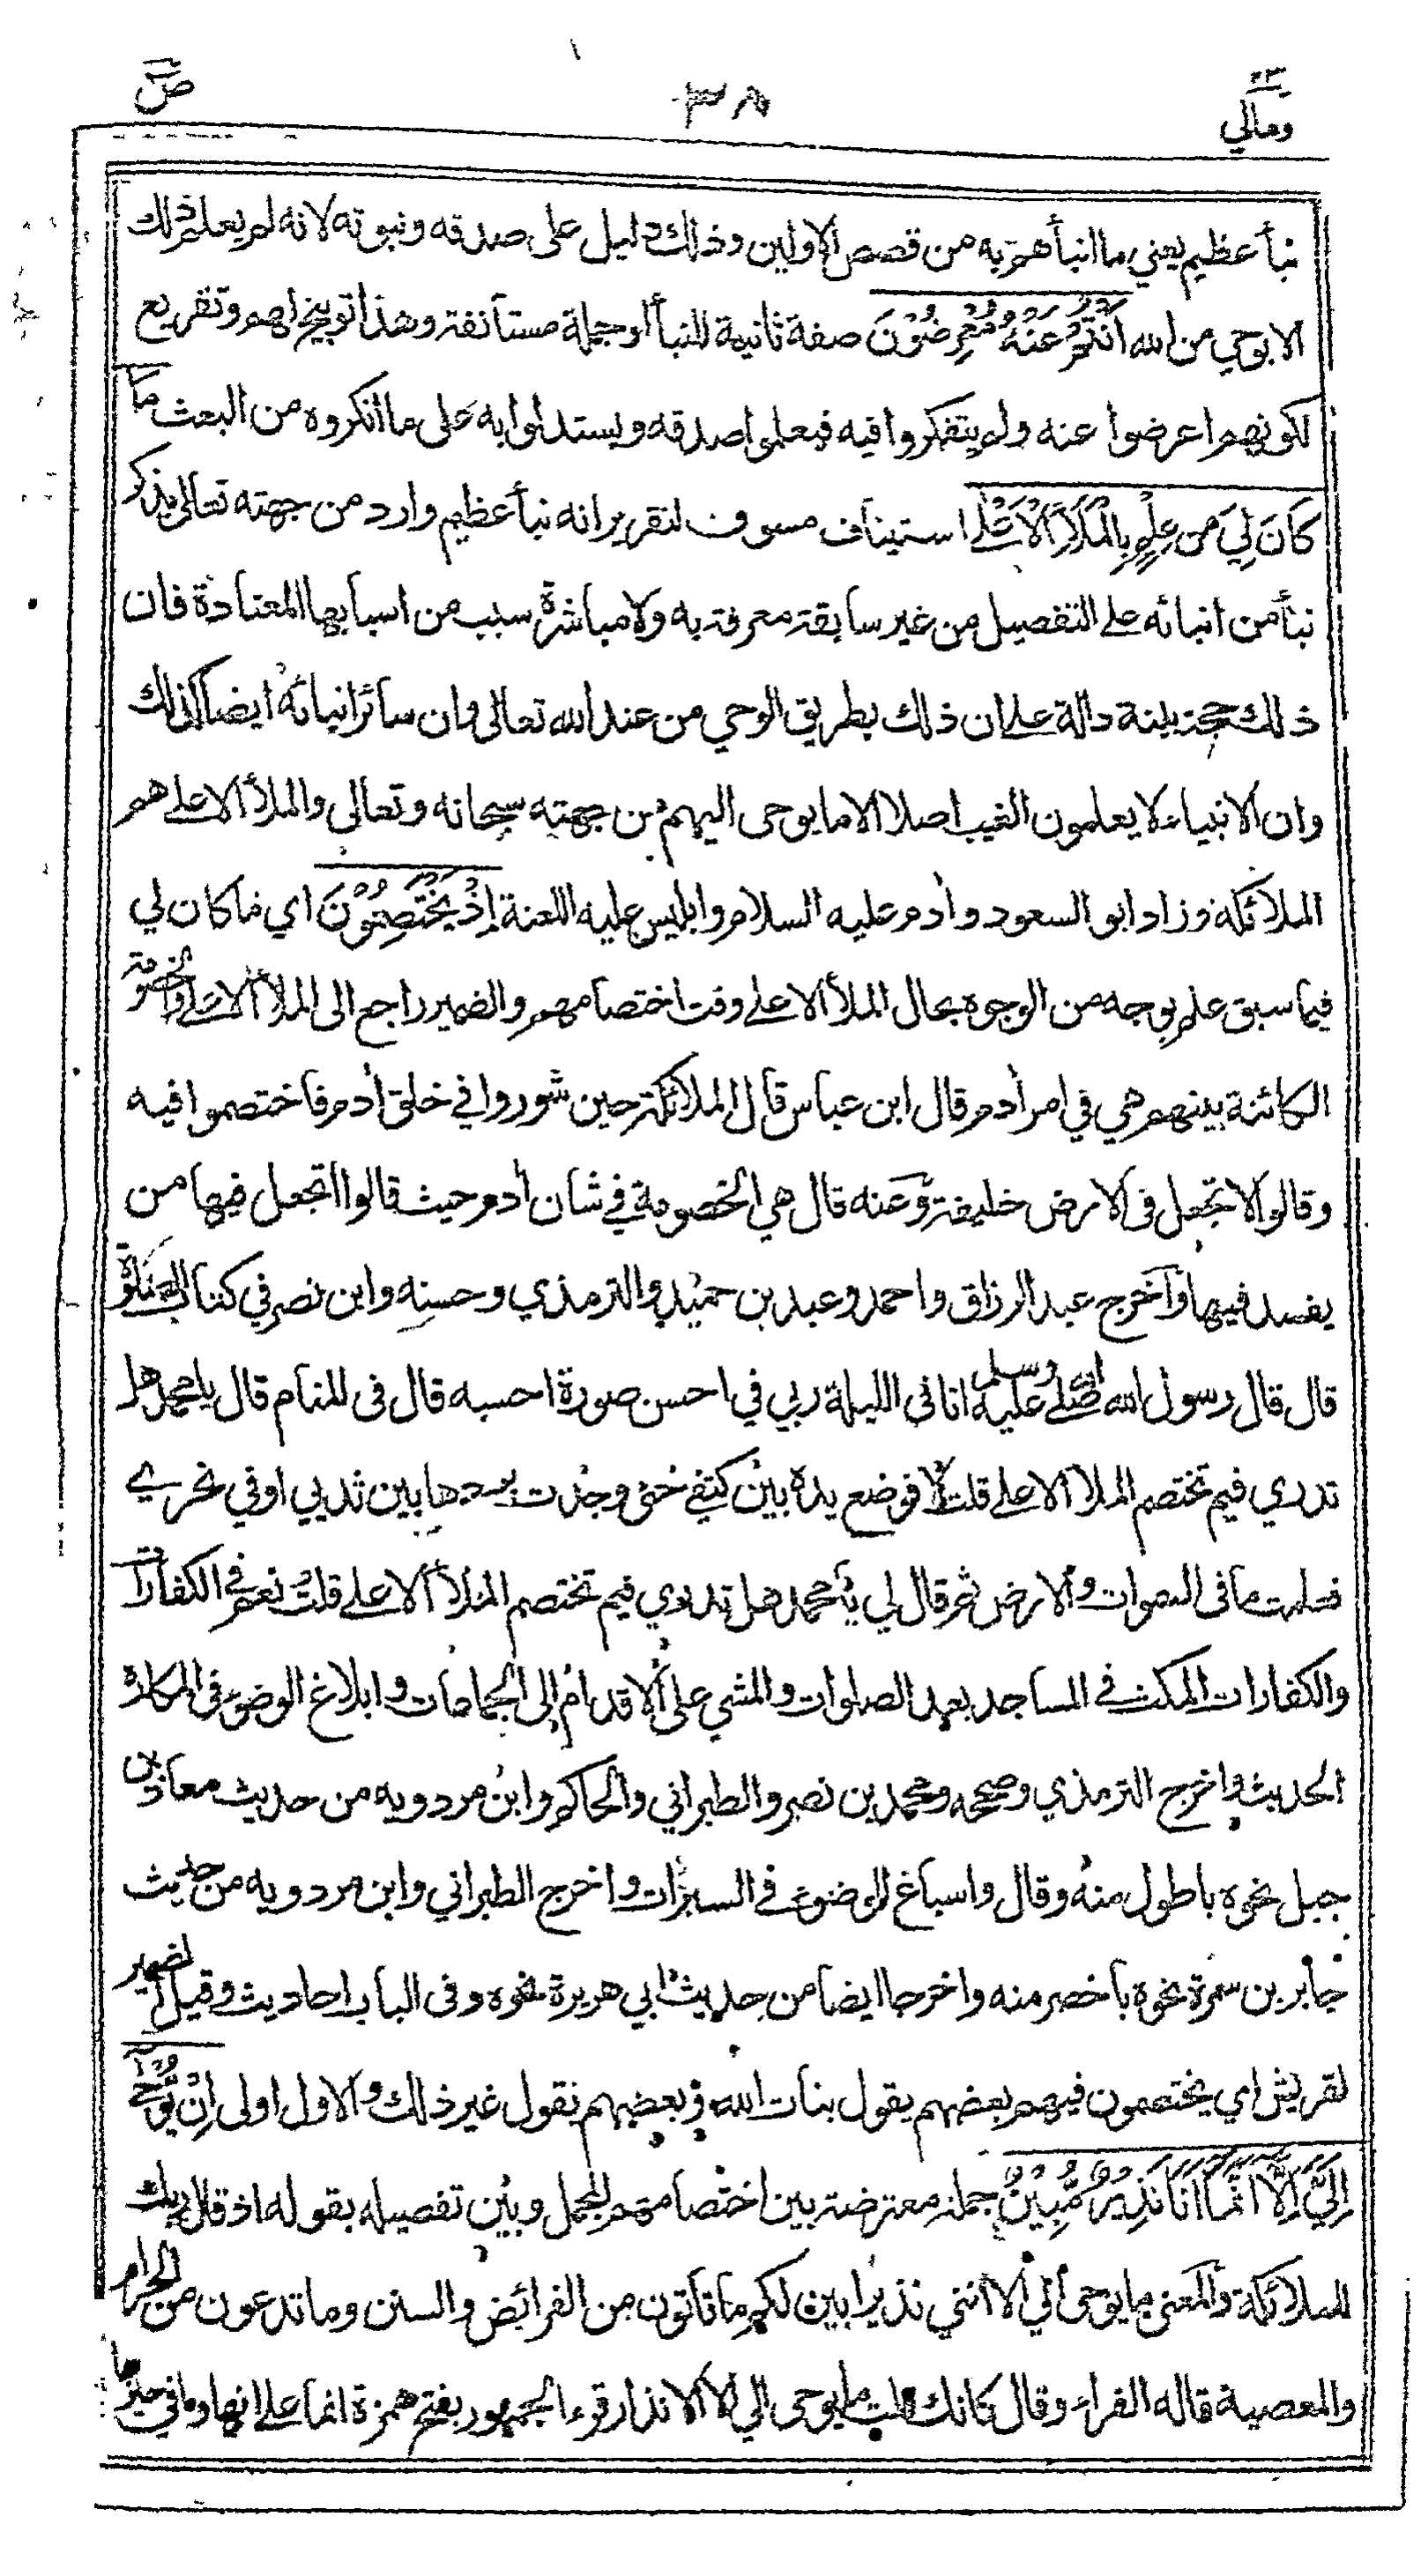 ٢٣
ومالي
٣٨
ص
نبأ عظيم يعني ما انبأهم به من قصص الاولين وذلك دليل على صدقه ونبوته لانه لم يعلم ذلك
الا بوحي من الله أَنْتُمْ عَنْهُ مُعْرِضُوْنَ صفة ثانية للنبأ او جملة مستأنفة وهذا توبيخ لهم وتقريع
لكونهم اعرضوا عنه ولم يتفكروا فيه فيعلموا صدقه ويستدلوا به على ما انكروه من البعث مَا
كَانَ لِيَ مِن عِلْمٍ بِالْمَلَإِ الْاَعْلٰى استيناف مسوق لتقرير انه نبأ عظيم وارد من جهته تعالى بذكر
نبأ من انبائه على التفصيل من غير سابقة معرفة به ولا مباشرة سبب من اسبابها المعتادة فان
ذلك حجة بينة دالة على ان ذلك بطريق الوحي من عند الله تعالى وان سائر انبائه ايضا كذلك
وان الانبياء لا يعلمون الغيب اصلا الا ما يوحى اليهم من جهته سبحانه وتعالى والملأ الاعلى هم
الملائكة وزاد ابو السعود وأدم عليه السلام وابليس عليه اللعنة اِذْ يَخْتَصِمُوْنَ اي ما كان لي
فيما سبق علم بوجه من الوجوه بحال الملأ الاعلى وقت اختصامهم والضمير راجع الى الملأ الاعلى والخصومة
الكائنة بينهم هي في امر أدم قال ابن عباس قال الملائكة حين شوروا في خلق أدم فاختصموا فيه
وقالوا لا تجعل في الارض خليفة وعنه قال هي الخصومة في شان أدم حيث قالوا اتجعل فيها من
يفسد فيها وأخرج عبد الرزاق واحمد وعبد بن حميد والترمذي وحسنه وابن نصر في كتاب الصلوة
قال قال رسول الله صلى الله عليه وسلم اتاني الليلة ربي في احسن صورة احسبه قال في المنام قال يا محمد هل
تدري فيم تختصم الملأ الاعلى قلت لا فوضع يده بين كتفي حتى وجدت بردها بين ثديي او في نحري
فعلمت ما في السموات والارض ثم قال لي يا محمد هل تدري فيم تختصم الملأ الاعلى قلت نعم في الكفارات
والكفارات المكث في المساجد بعد الصلوات والمشي على الاقدام الى الجماعات وابلاغ الوضوء في المكاره
الحديث واخرج الترمذي وصححه ومحمد بن نصر والطبراني والحاكم وابن مردويه من حديث معاذ بن
جبل نحوه باطول منه وقال واسباغ الوضوء في السبرات واخرج الطبراني وابن مردويه من حديث
جابر بن سمرة نحوه بأخصر منه واخرجا ايضا من حديث ابي هريرة نحوه وفي الباب احاديث وقيل الضمير
لقريش اي يختصمون فيهم بعضهم يقول بنات الله وبعضهم نقول غير ذلك والاول اولى اِنْ يُّوْحٰٓى
اِلَيَّ اِلَّا اَنَّمَا اَنَا نَذِيْرٌ مُّبِيْنٌ جملة معترضة بين اختصامهم المجمل وبين تفصيله بقوله اذ قال ربك
للملائكة والمعنى ما يوحى الي الا أنني نذير ابين لكم ما تأتون من الفرائض والسنن وما تدعون من الحرام
والمعصية قاله الفراء وقال كانك قلت ما يوحى الي الا الانذار قرء الجمهور بفتح همزة انما على انها وما في حيزها